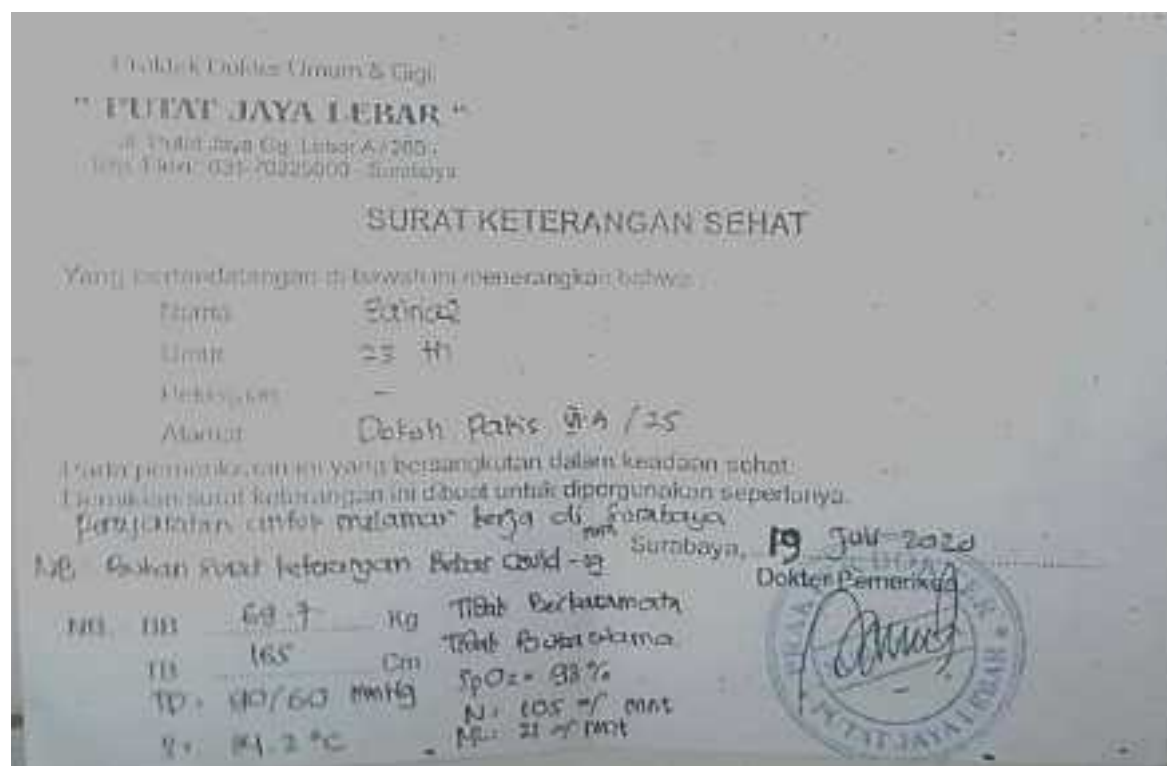 Praktek Dokter Umum & Gigi
" PUTAT JAYA LEBAR "
Jl. Putat Jaya Gg. Lebar A / 205
031-70225000 - Surabaya
SURAT KETERANGAN SEHAT
Yang bertandatangan di bawah ini menerangkan bahwa :
Nama
Umur 23 th
Pekerjaan -
Alamat Dokoh Pakis VI.A / 25
Pada pemeriksaan ini yang bersangkutan dalam keadaan sehat.
Demikian surat keterangan ini dibuat untuk dipergunakan seperlunya.
perjalanan untuk melamar kerja di Surabaya
Surabaya, 19 Juli 2020
NB. Bukan surat keterangan Bebas Covid-19
Dokter Pemeriksa
NB. BB 69.7 Kg Tidak Berkacamata
TB 165 Cm Tidak Buta warna
TD: /60 mmHg SpO2= 98%
N: 105 x/ mnt
°C RR: 21 x/ mnt
PUTAT JAYA LEBAR